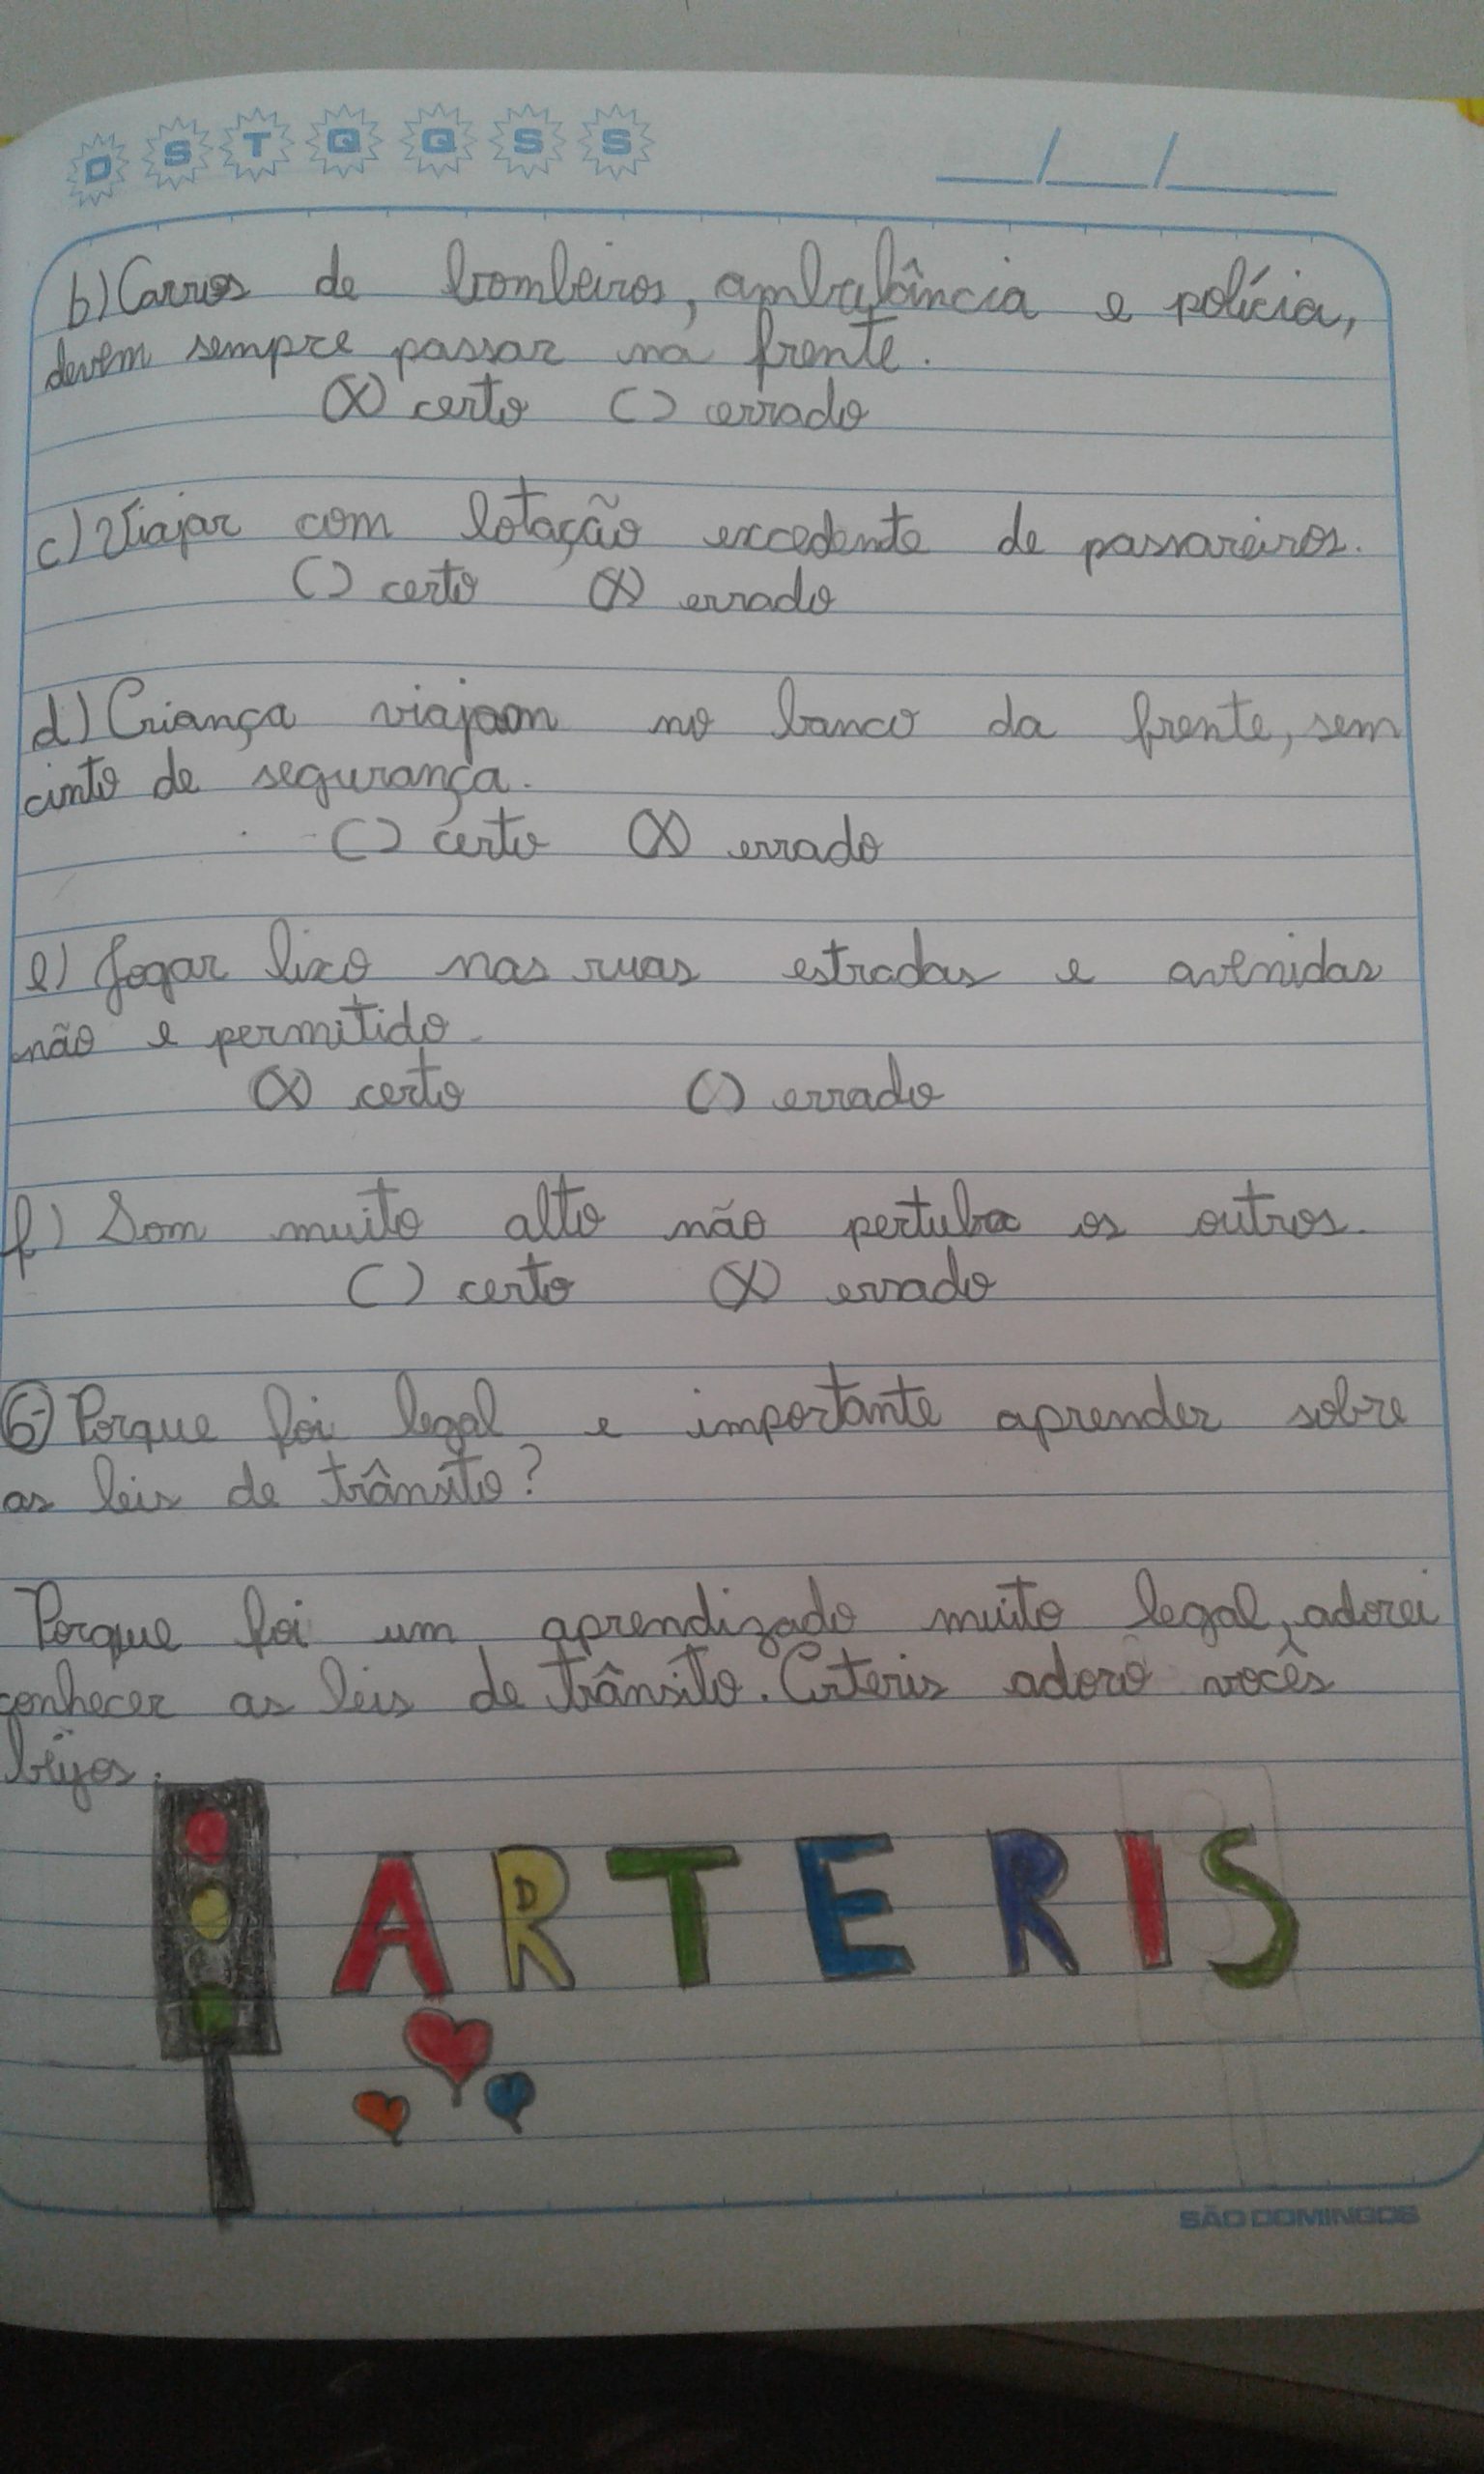 D S T Q Q S S
__/__/__
b) Carros de bombeiros, ambulância e polícia,
devem sempre passar na frente.
(X) certo ( ) errado
c) Viajar com lotação excedente de passareiros.
( ) certo (X) errado
d) Criança viajam no banco da frente, sem
cinto de segurança.
( ) certo (X) errado
e) Jogar lixo nas ruas estradas e avenidas
não e permitido.
(X) certo ( ) errado
f) Som muito alto não pertuba os outros.
( ) certo (X) errado
6- Porque foi legal e importante aprender sobre
as leis de trânsito?
Porque foi um aprendizado muito legal, adorei
conhecer as leis de trânsito. Arteris adoro vocês
beijos.
ARTERIS
SÃO DOMINGOS